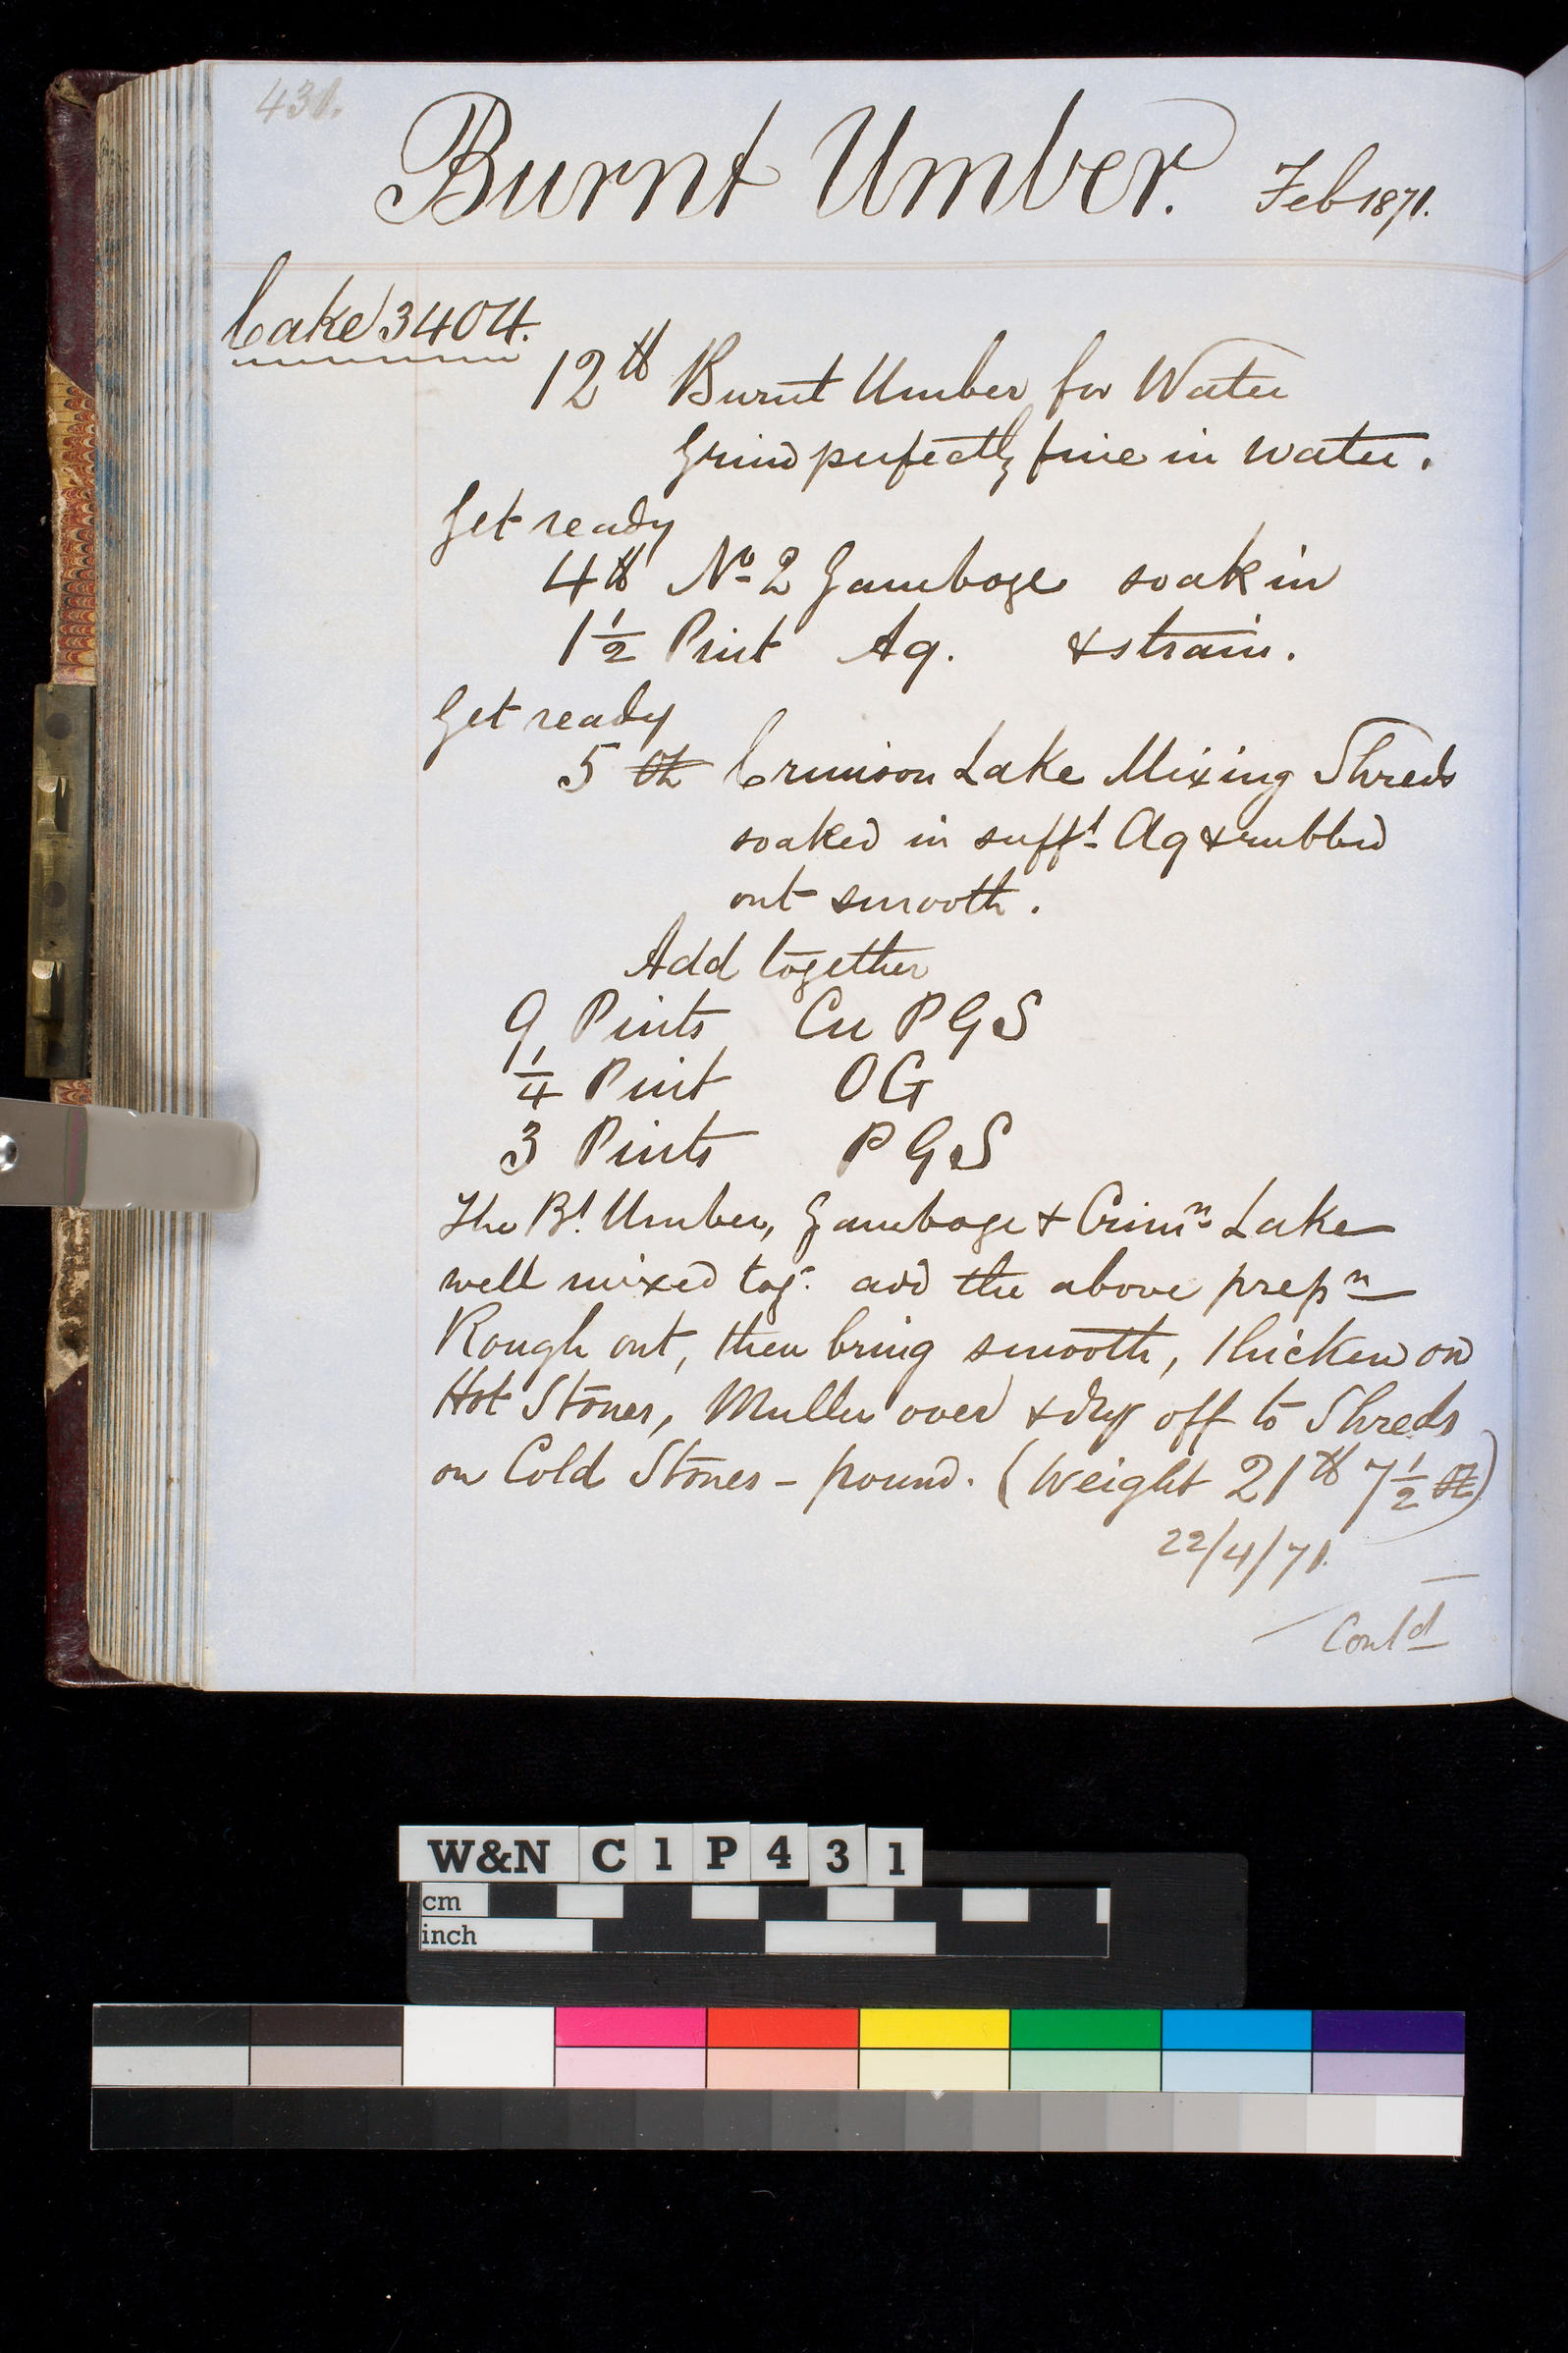 431.
Burnt Umber. Feb 1871.
Cake 3404.
12 ℔ Burnt Umber for Water
Grind perfectly fine in water.
Get ready
4 ℔ No 2 Gamboge soak in
1½ Pint Aq. & strain.
Get ready
5 oz Crimson Lake Mixing Shreds
soaked in sufft Aq & rubbed
out smooth.
Add together
9 Pints Cu P G S
¼ Pint O G
3 Pints P G S
The Bt Umber, Gamboge & Crimn Lake
well mixed tog. add the above prepn
Rough out, then bring smooth, thicken on
Hot Stones, Muller over & dry off to Shreds
on Cold Stones – pound. (Weight 21 ℔ 7½ oz)
22/4/71.
Contd
W&N C1P431
cm
inch